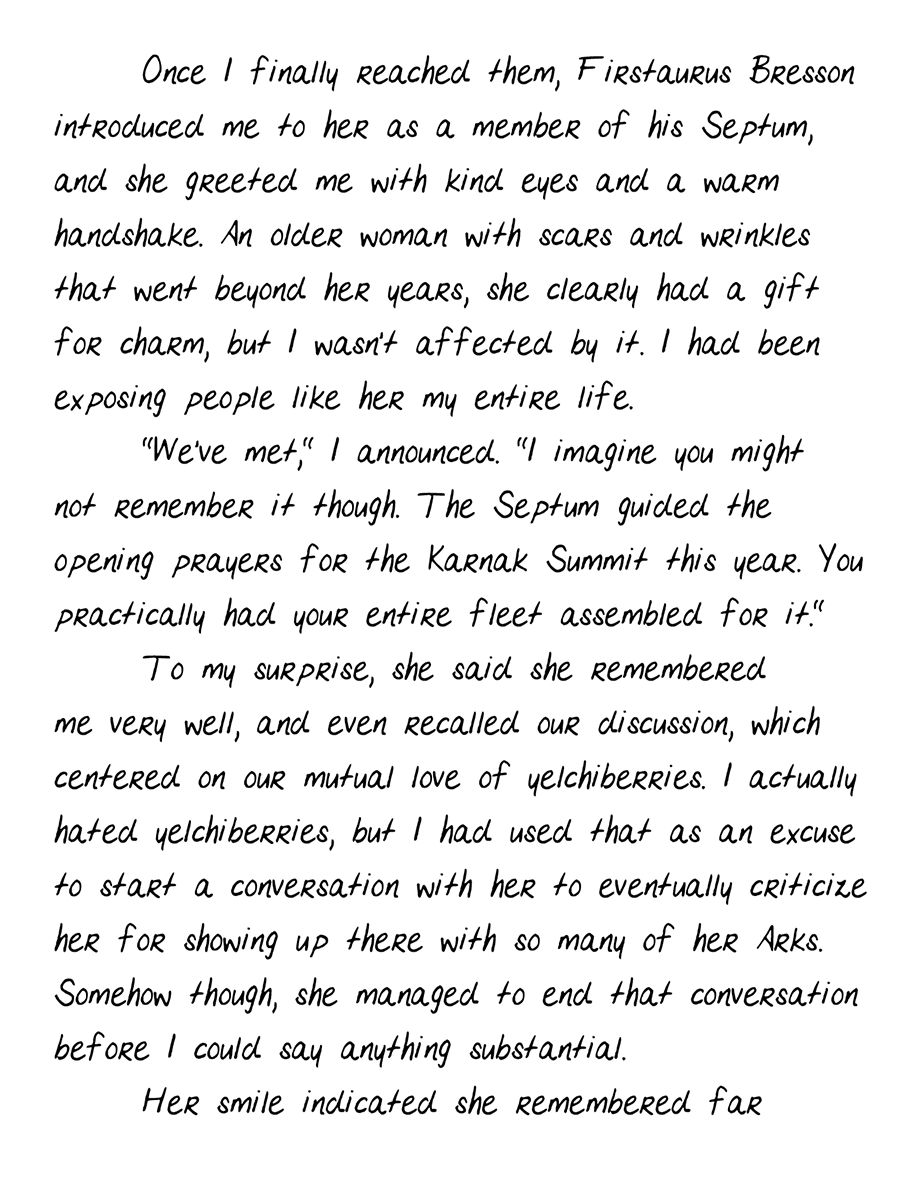 Once I finally reached them, Firstaurus Bresson
introduced me to her as a member of his Septum,
and she greeted me with kind eyes and a warm
handshake. An older woman with scars and wrinkles
that went beyond her years, she clearly had a gift
for charm, but I wasn't affected by it. I had been
exposing people like her my entire life.
"We've met," I announced. "I imagine you might
not remember it though. The Septum guided the
opening prayers for the Karnak Summit this year. You
practically had your entire fleet assembled for it."
To my surprise, she said she remembered
me very well, and even recalled our discussion, which
centered on our mutual love of yelchiberries. I actually
hated yelchiberries, but I had used that as an excuse
to start a conversation with her to eventually criticize
her for showing up there with so many of her Arks.
Somehow though, she managed to end that conversation
before I could say anything substantial.
Her smile indicated she remembered far